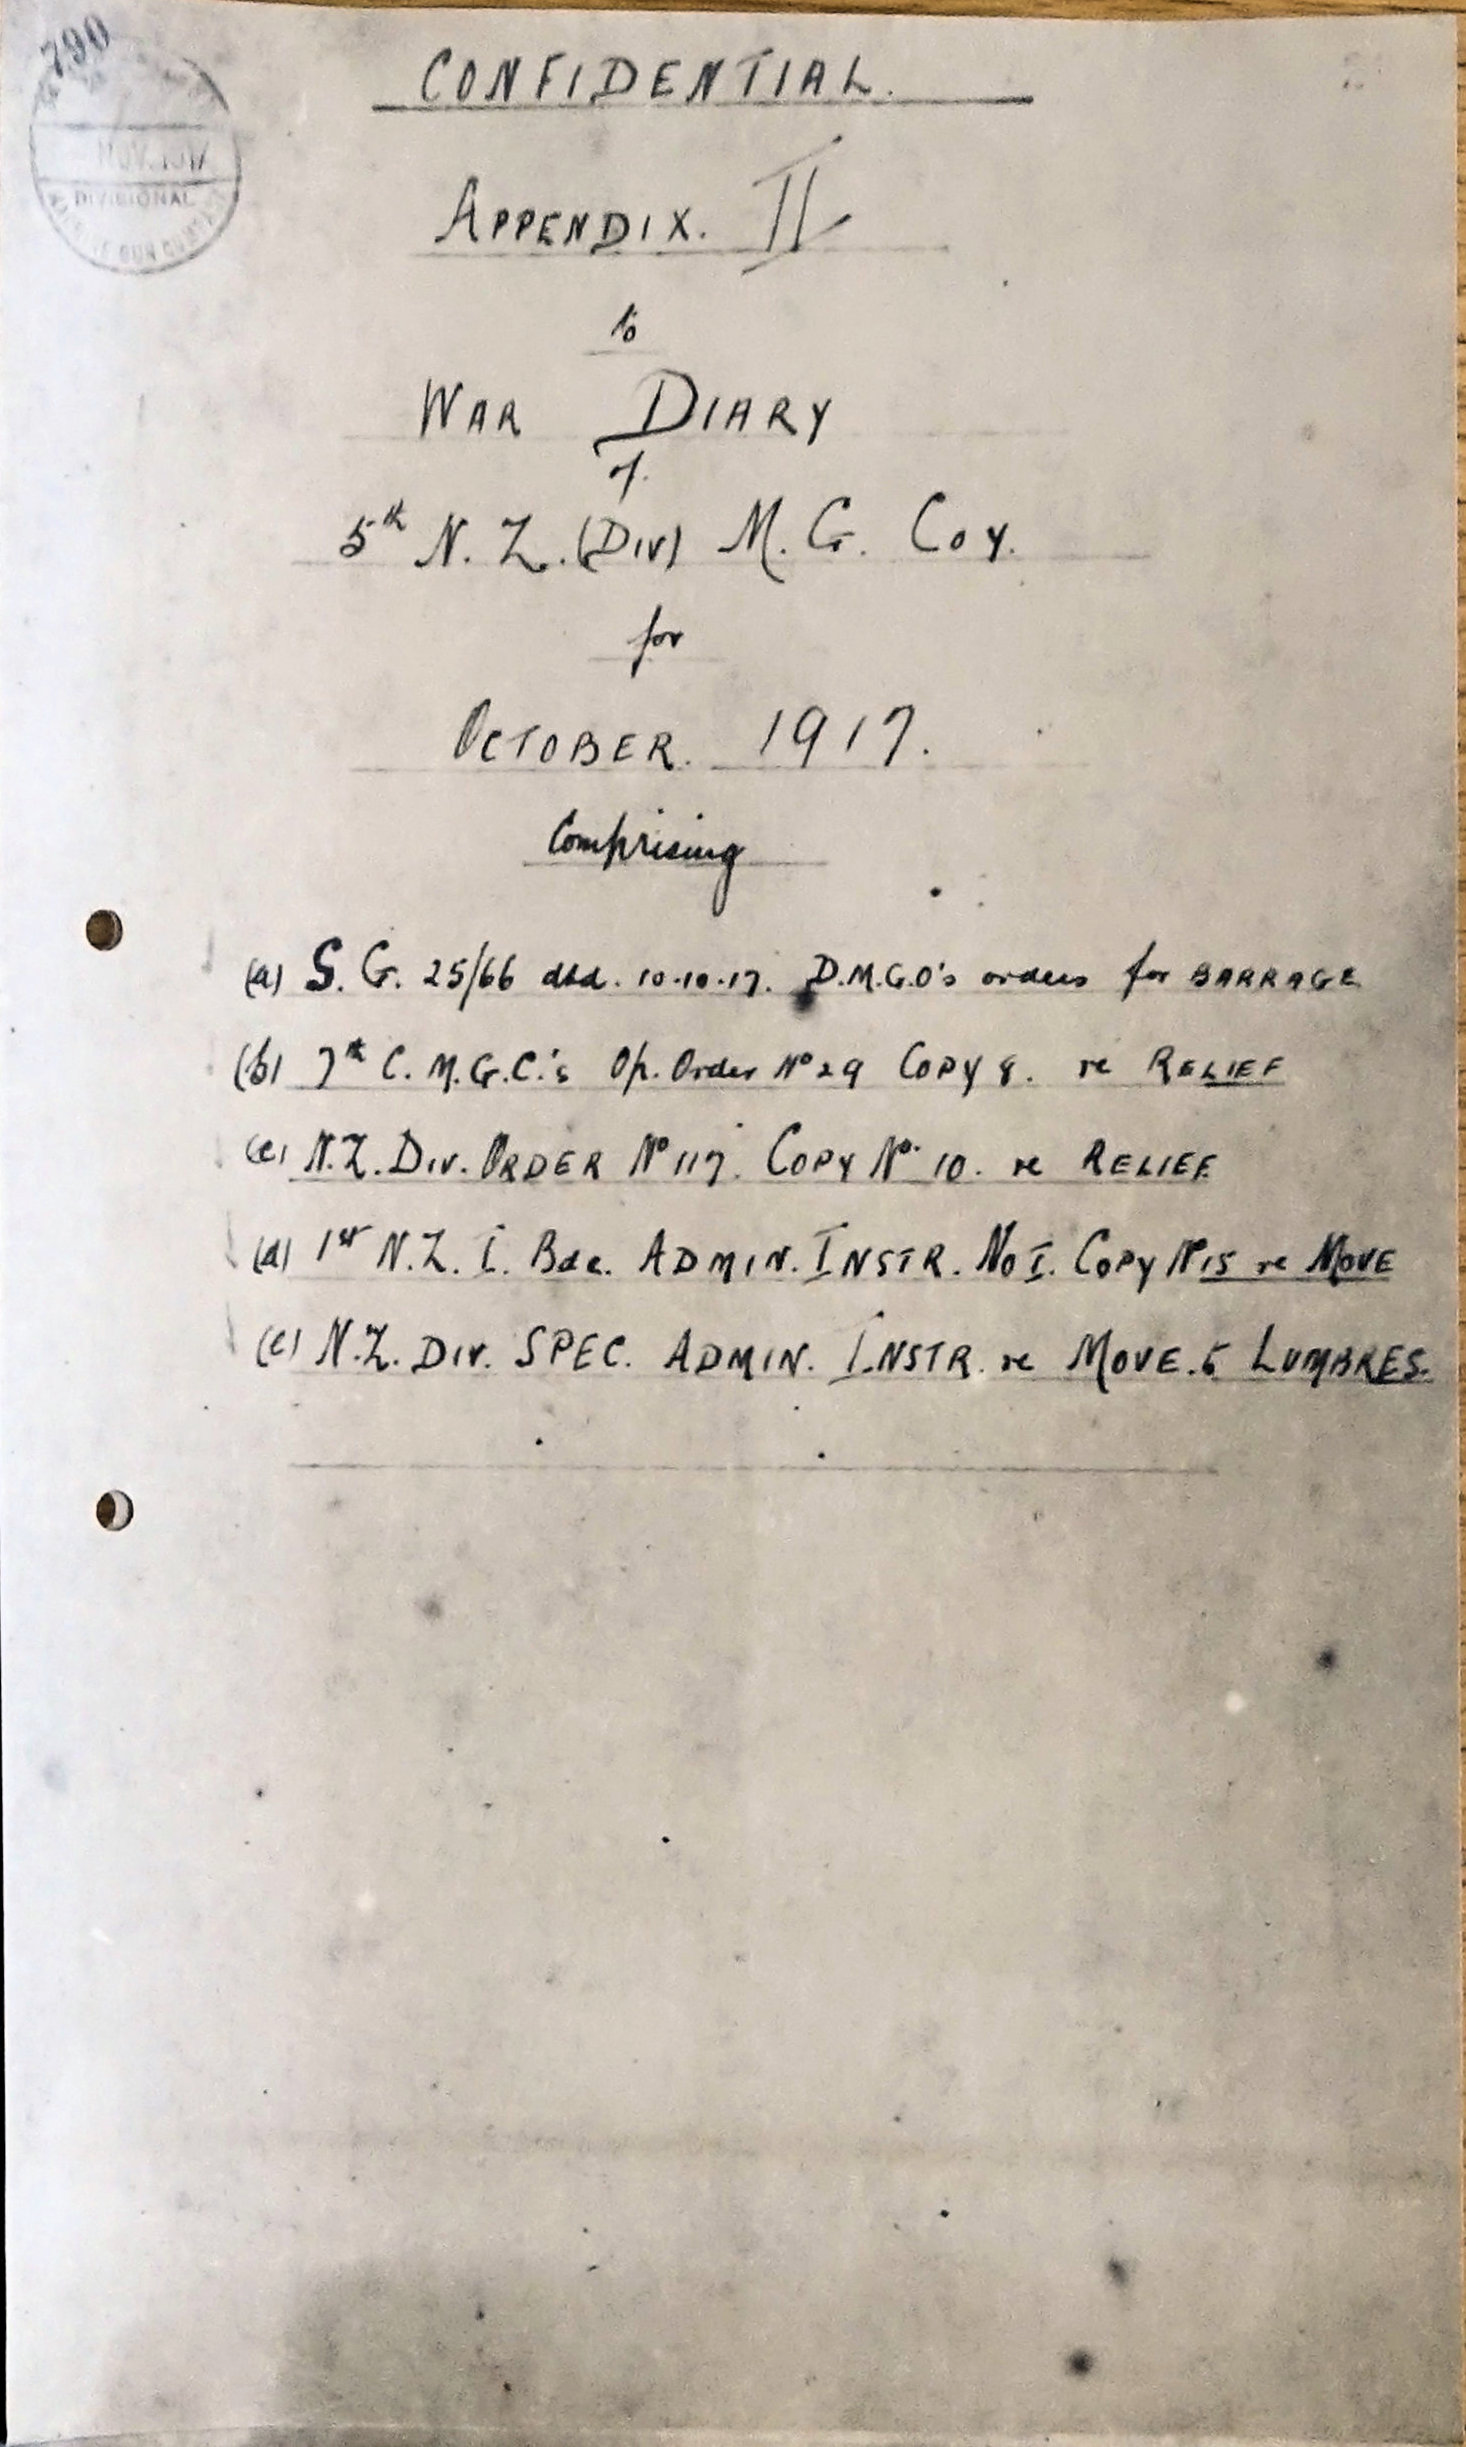 790
NOV. 1917
DIVISIONAL
GUN
CONFIDENTIAL.
APPENDIX. II
to
WAR DIARY
of.
5th N. Z. (DIV) M. G. COY.
for
OCTOBER. 1917.
Comprising
(a) S. G. 25/66 dtd. 10.10.17. D.M.G.O's orders for BARRAGE
(b) 7th C. M. G. C.'s Op. Order No 29 COPY 8. re RELIEF
(c) N.Z. DIV. ORDER No 117. COPY No. 10. re RELIEF.
(d) 1st N. Z. I. Bde. ADMIN. INSTR. No I. COPY No 15 re MOVE
(e) N.Z. DIV. SPEC. ADMIN. INSTR. re MOVE. to LUMBRES.